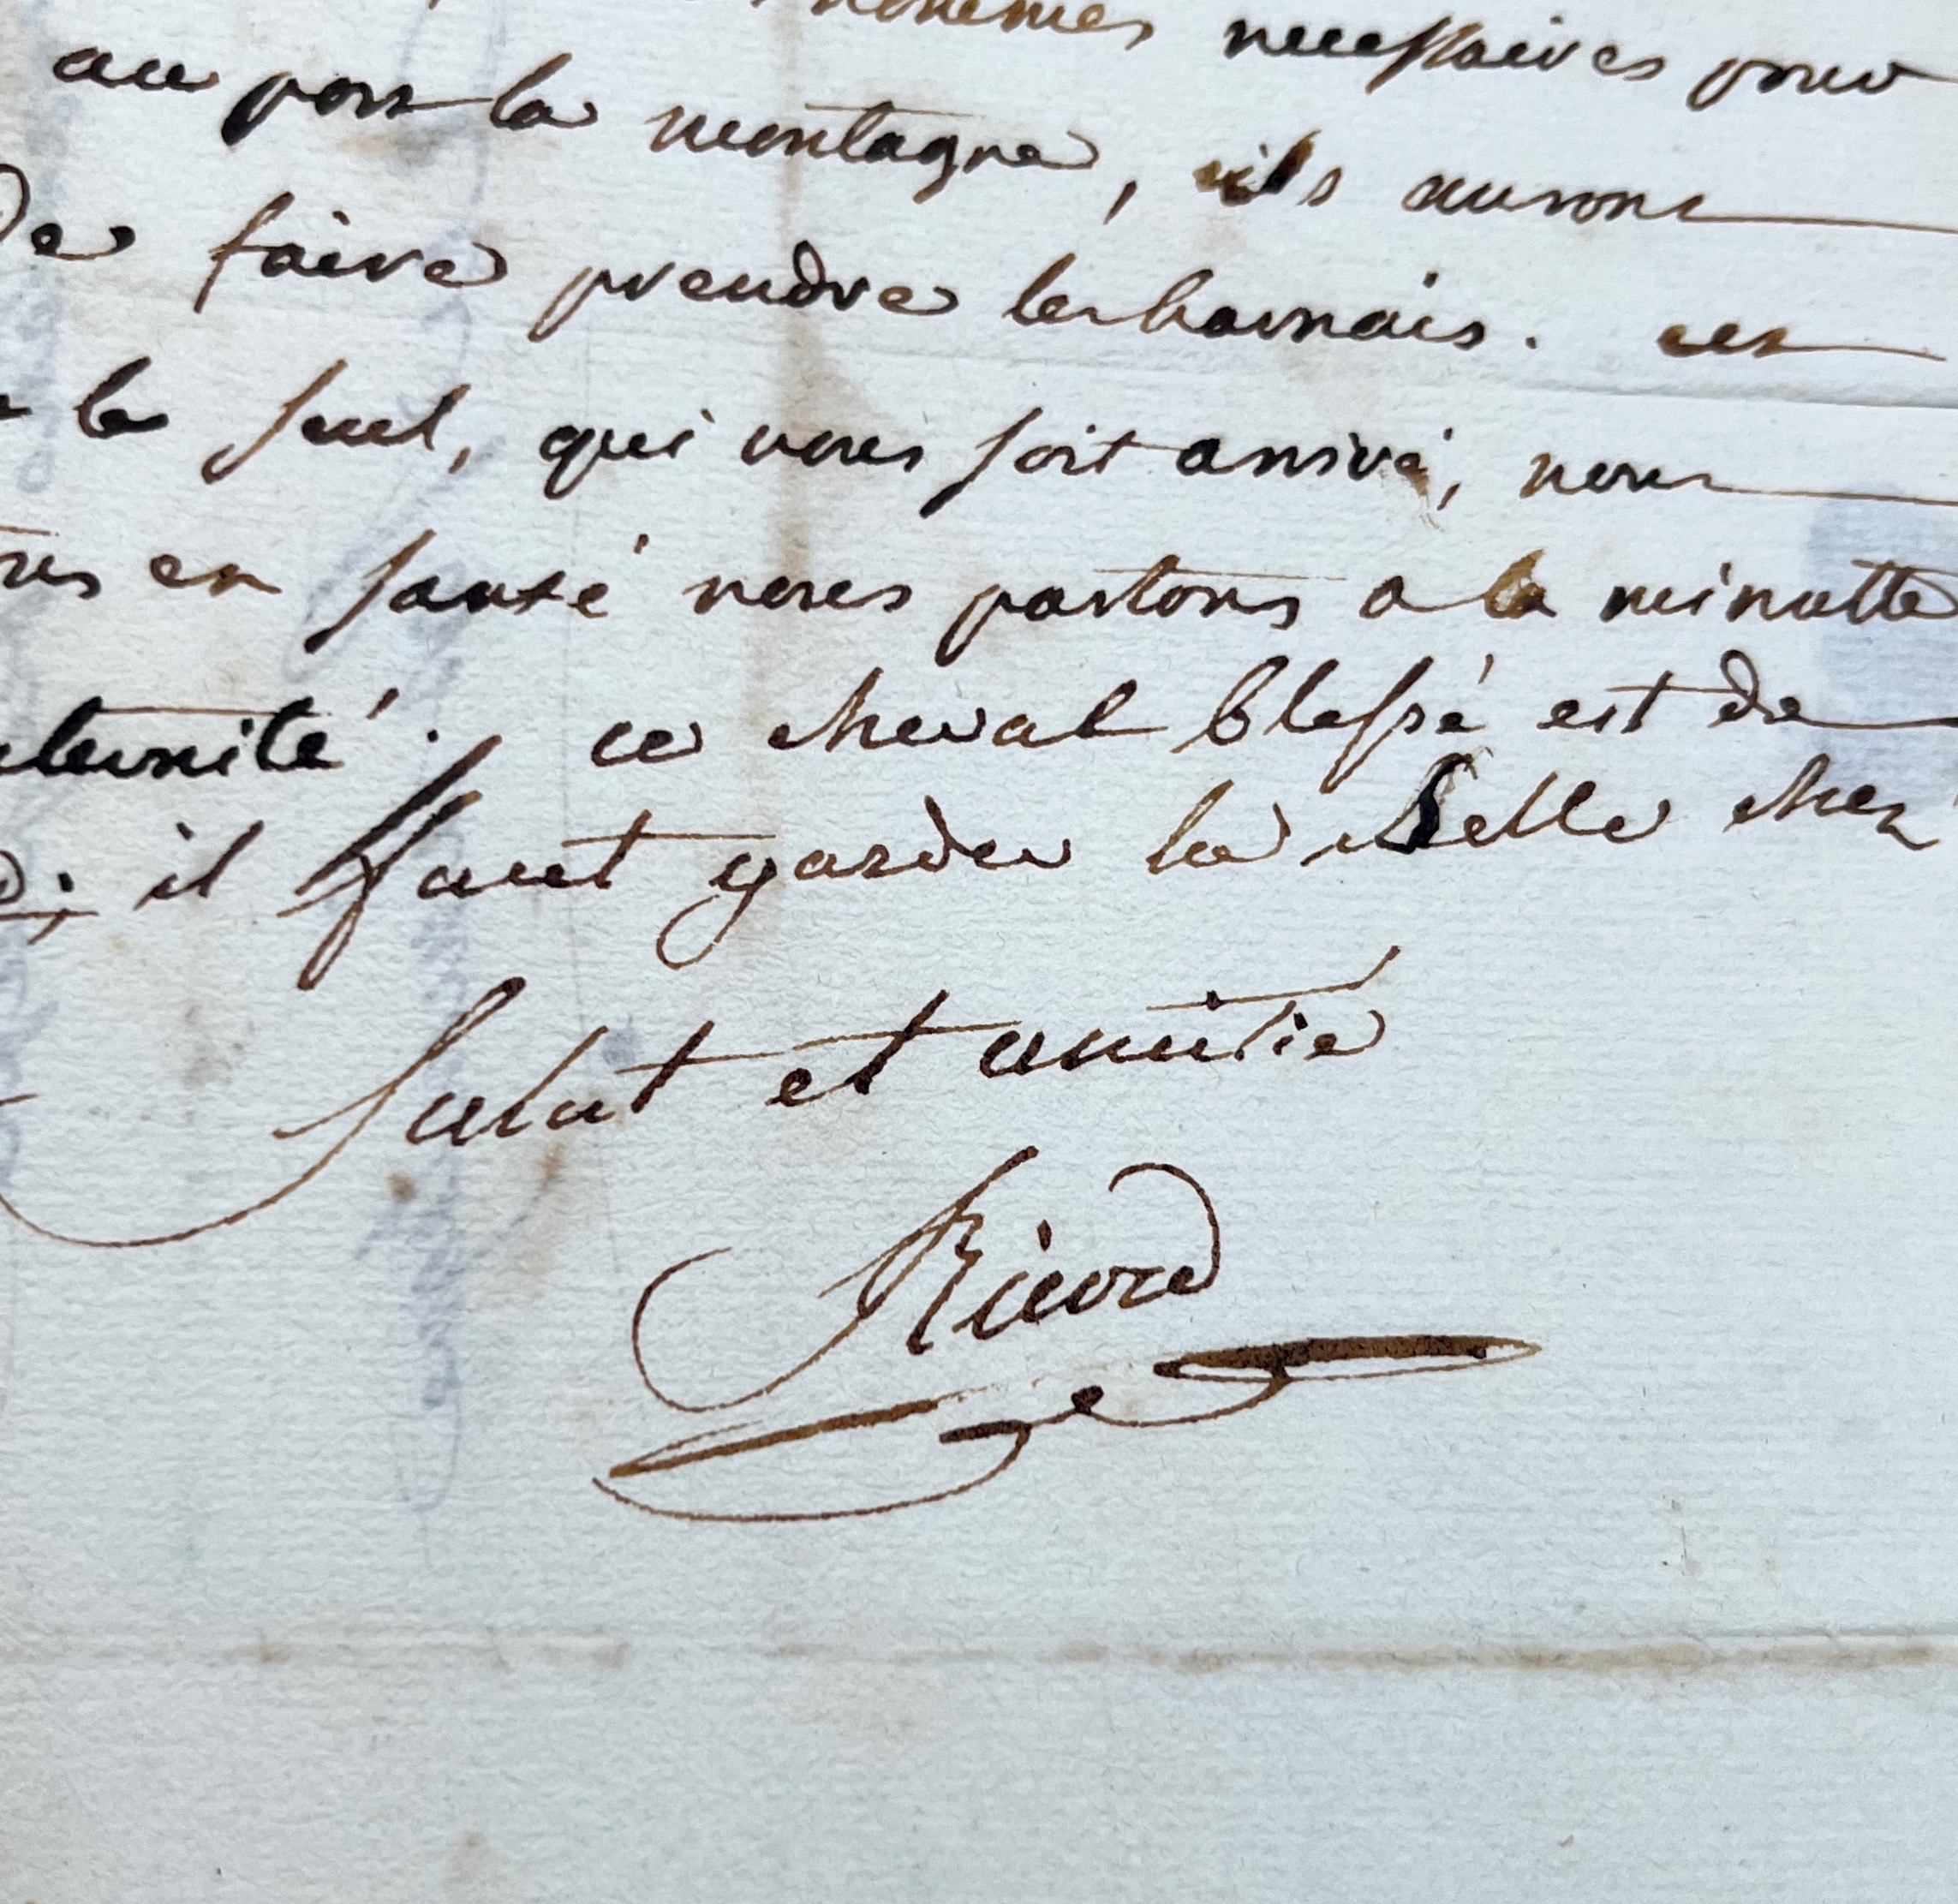 necessaires pour
au port la montagne, ils auront
De faire prendre les harnais. cet
le seul, qui vous soit arrivé, nous
en santé nous partons a la minutte
ternité. ce cheval blessé est de
il faut garder la selle chez
Salut et amitié
Ricord